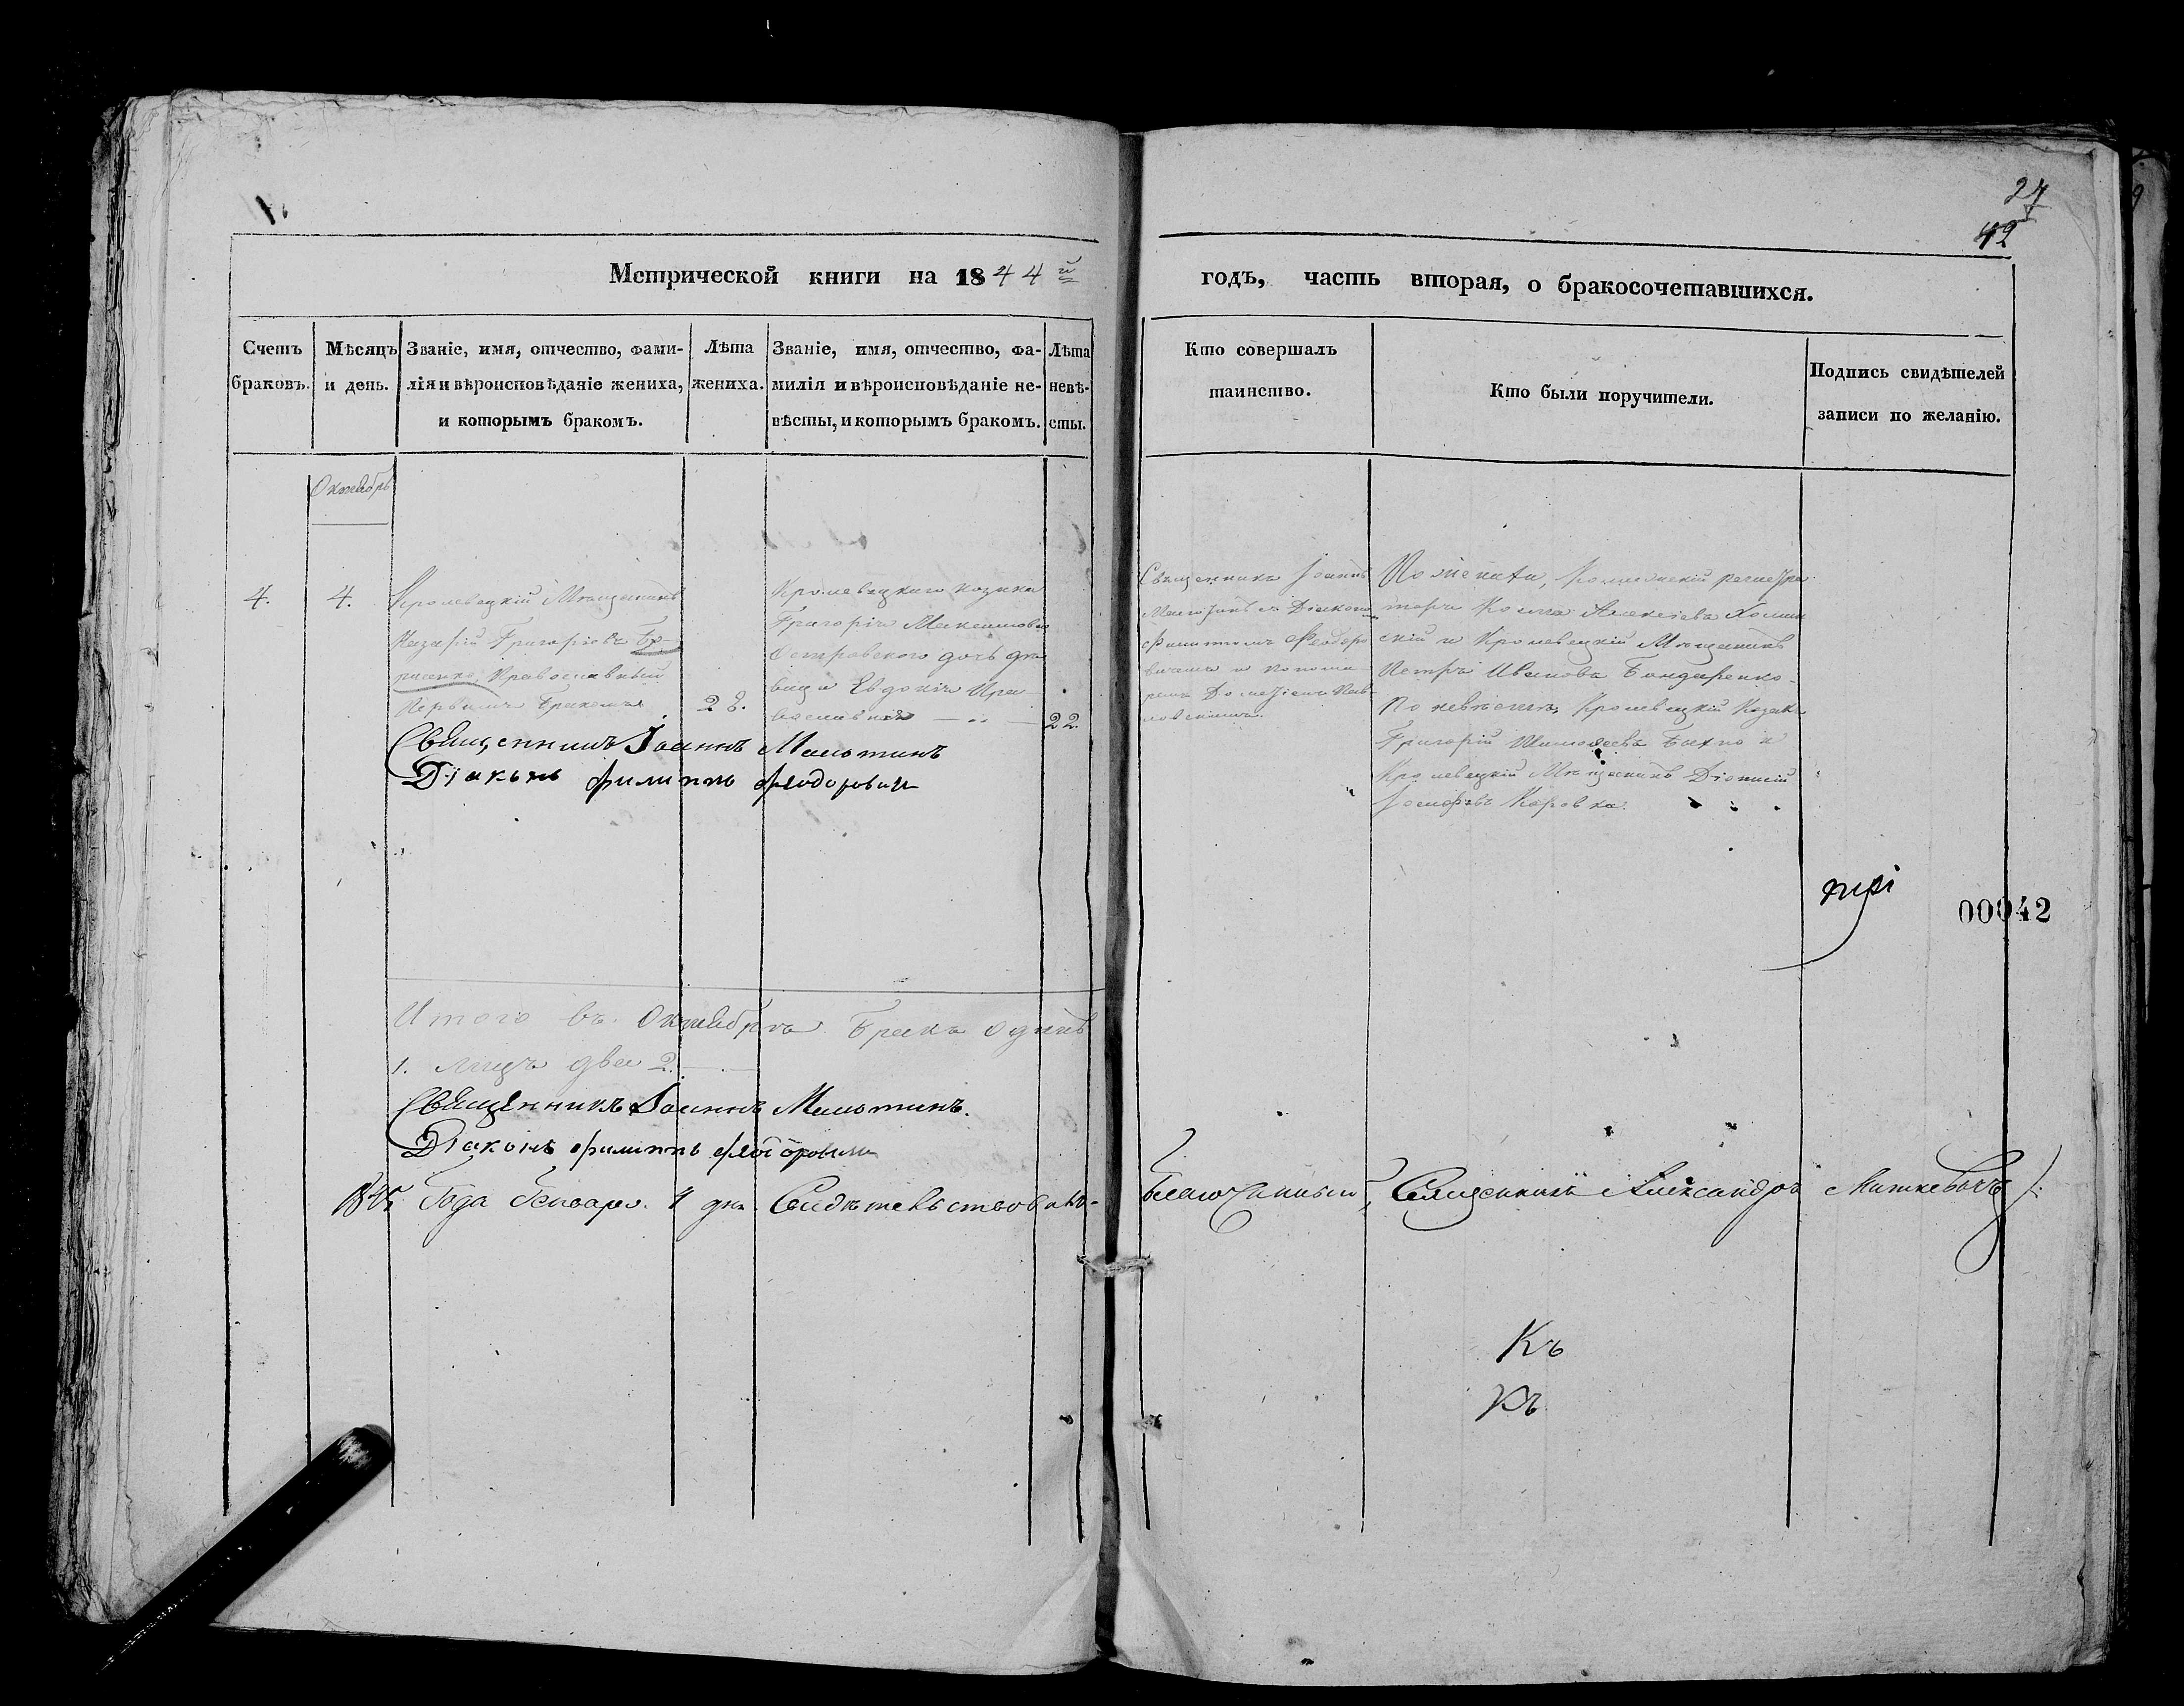 27
42
Метрической книги на 1844й
годъ, часть вторая, о бракосочетавшихся.
Счетъ браковъ.
Мѣсяцъ и день.
Званіе, имя, отчество, фами-
лія и вѣроисповѣданіе жениха,
и которымъ бракомъ.
Лѣта
жениха.
Званіе, имя, отчество, фа-
милія и вѣроисповѣданіе не-
вѣсты, и которымъ бракомъ.
Лѣта
невѣ-
сты.
Кто совершалъ
таинство.
Кто были поручители.
Подпись свидѣтелей
записи по желанію.
Октябрь
4.
4.
Кролевецкій Мѣщанинъ
Назарій Григоріевъ Бо-
рисенко, Православный
Первымъ Бракомъ
28.
Кролевецкаго козака
Григорія Максимова
Островского дочь дѣ
вица Евдокія Пра
вославная
22
Священникъ Іоаннъ
Малютинъ и Діаконъ
Филиппъ Феодоро
вичемъ и понома
ремъ Пав
ловскимъ.
По женихѣ, Коллежскій регистра
торъ Козма Алексіевъ
скій и Кролевецкій Мѣщанинъ
Петръ Ивановъ Бондаренко
По невѣстѣ, Кролевецкій Козакъ
Григорій и
Кролевецкій Мѣщанинъ Діонисій
Іосифовъ Коровка.
Священникъ Іоаннъ Малютинъ
Діаконъ Филиппъ Феодоровичъ
три
00042
Итого въ Октябрѣ Бракъ одинъ
1. Лицъ два 2.
Священникъ Іоаннъ Малютинъ.
Діаконъ Филиппъ Феодоровичъ
1845 Года Генваря 1 дня Свидѣтельствовалъ
Благочинный, Священникъ Александръ Миткевичъ
Къ
Къ